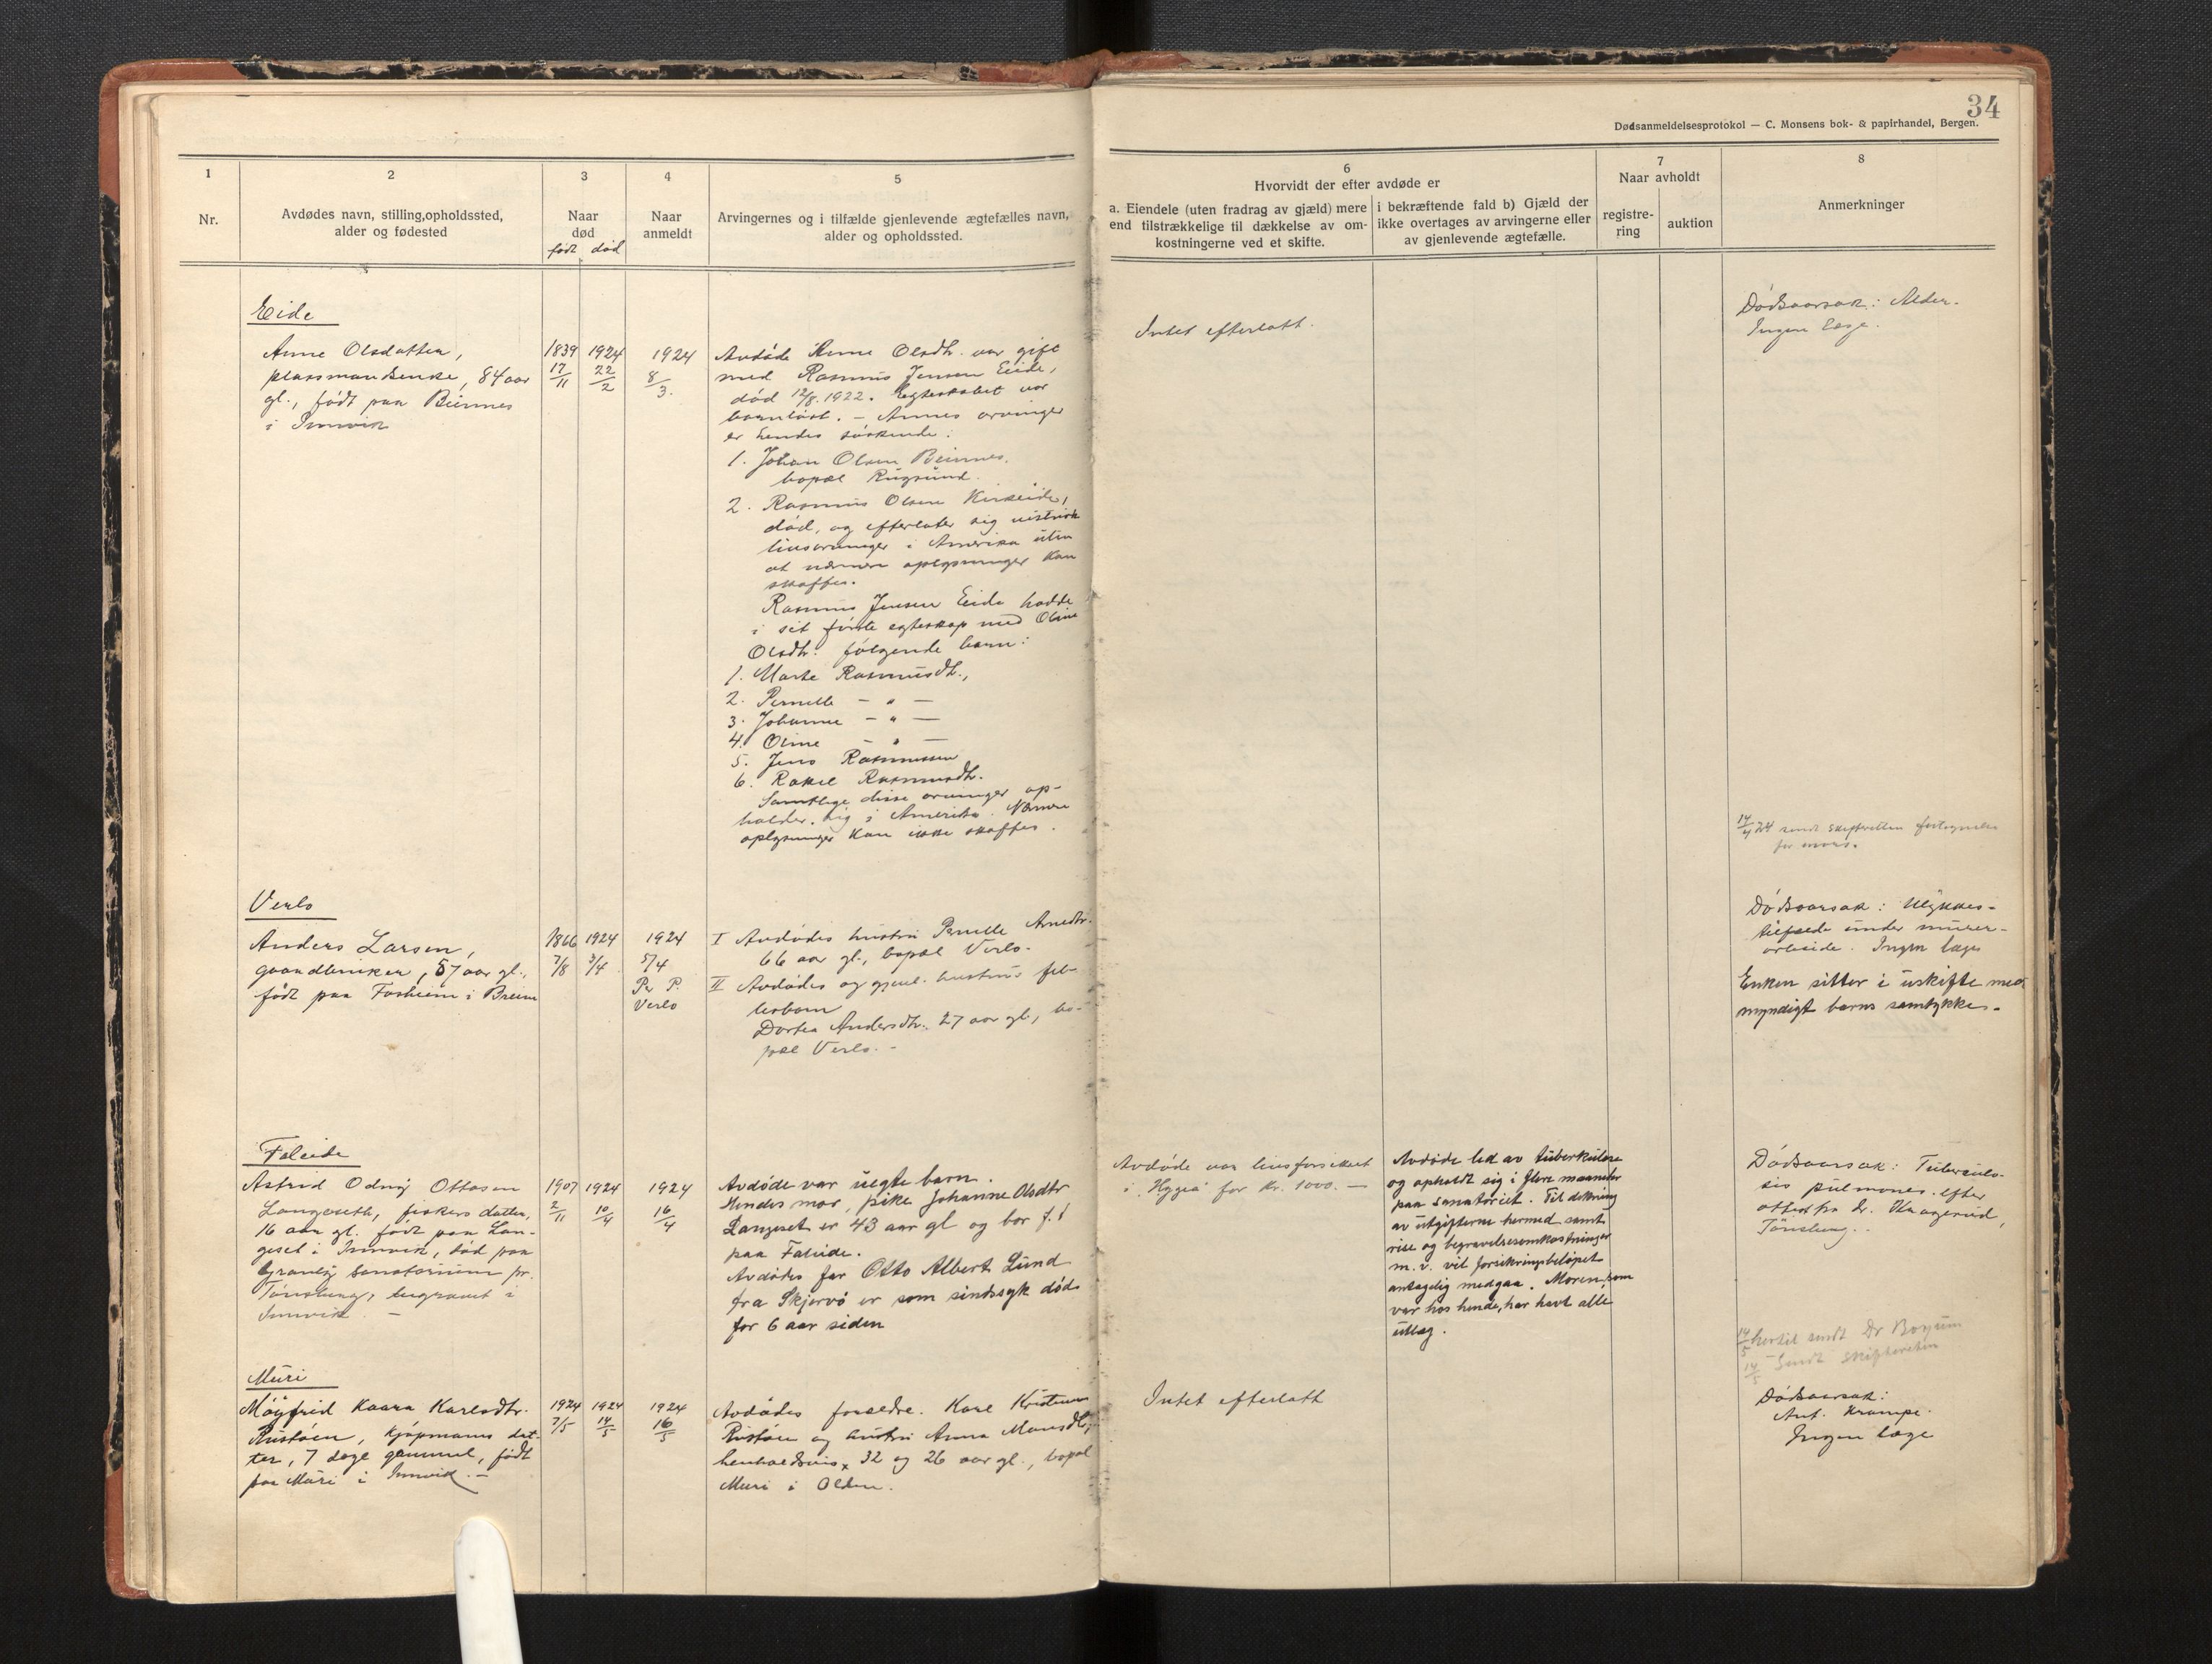 34
Dødsanmeldelsesprotokol — C. Monsens bok- & papirhandel, Bergen.
1
Nr.
2
Avdødes navn, stilling, opholdssted,
alder og fødested
3
Naar
død
født død
4
Naar
anmeldt
5
Arvingernes og i tilfælde gjenlevende ægtefælles navn,
alder og opholdssted.
6
Hvorvidt der efter avdøde er
a. Eiendele (uten fradrag av gjæld) mere
end tilstrækkelige til dækkelse av om-
kostningerne ved et skifte.
i bekræftende fald b) Gjæld der
ikke overtages av arvingerne eller
av gjenlevende ægtefælle.
7
Naar avholdt
registre-
ring
auktion
8
Anmerkninger
Eide
Anne Olsdatter,
plassmandsenke, 84 aar
gl., født paa Beinnes
i Innvik
1839 1924
17/11 22/2
1924
8/3.
Avdøde Anne Olsdtr. var gift
med Rasmus Jensen Eide,
død 12/8. 1922. Egteskabet var
barnløst. – Annes arvinger
er hendes søskende:
1. Johan Olsen Beinnes.
bopæl Rugsund.
2. Rasmus Olsen Kirkeide,
død, og efterlater sig
livsarvinger i Amerika uten
at nærmere oplysninger kan
skaffes.
Rasmus Jensen Eide hadde
i sit første egteskap med Oline
Olsdtr. følgende barn:
1. Marte Rasmusdtr.,
2. Pernille – " —
3. Johanne – " —
4. Oline – " —
5. Jens Rasmussen
6. Rakel Rasmusdtr.
Samtlige disse arvinger op-
holder sig i Amerika. Nærmere
oplysninger kan ikke skaffes.
Intet efterlatt.
Dødsaarsak: Alder.
Ingen læge.
14/4 24 sendt skifteretten fortegnelse
for mars.
Verlo
Anders Larsen,
gaardbruker, 57 aar gl.,
født paa Fosheim i Breim
1866 1924
7/8 3/4
1924
5/4
Per P.
Verlo
I Avdødes hustru Pernille Arnedtr.
66 aar gl., bopæl Verlo.
II Avdødes og gjenl. hustrus fel-
lesbarn
Dortea Andersdtr. 27 aar gl., bo-
pæl Verlo. –
Dødsaarsak: Ulykkes-
tilfælde under murer-
arbeide. Ingen læge
Enken sitter i uskifte med
myndigt barns samtykke.
Faleide
Astrid Odny Ottosen
Langeseth, fiskers datter,
16 aar gl. født paa Lan-
geset i Innvik, død paa
Granly sanatorium pr.
Tønsberg, begravet i
Innvik. –
1907 1924
2/11 10/4
1924
16/4
Avdøde var uegte barn.
Hendes mor, pike Johanne Olsdtr
Langeset er 43 aar gl og bor f. t
paa Faleide.
Avdødes far Otto Albert Lund
fra Skjervø er som sindssyk døde
for 6 aar siden
Avdøde var livsforsikret
i "Hygea" for Kr. 1000. —
Avdøde led av tuberkulose
og opholdt sig i flere maaneder
paa sanatoriet. Til dækning
av utgifterne hermed samt
reise og begravelsesomkostninger
m. v. vil forsikringsbeløpet
antagelig medgaa. Moren, som
var hos hende, har havt alle
utlæg.
Dødsaarsak: Tubercülo-
sis pülmones. efter
attest fra dr. Kragerud,
Tönsberg.
14/5 hertil sendt Dr Boyum
14/5 – Sendt Skifteretten
Muri
Møyfrid Kaara Karlsdtr.
Rustøen, kjøpmanns dat-
ter, 7 dage gammel, født
paa Muri i Innvik. –
1924 1924
7/5 14/5
1924
16/5
Avdødes forældre. Karl Kristian
Rustøen og hustru Anna Monsdtr,
henholdsvis 32 og 26 aar gl., bopæl
Muri i Olden.
Intet efterlatt
Dødsaarsak:
Ant. Krampe.
Ingen læge